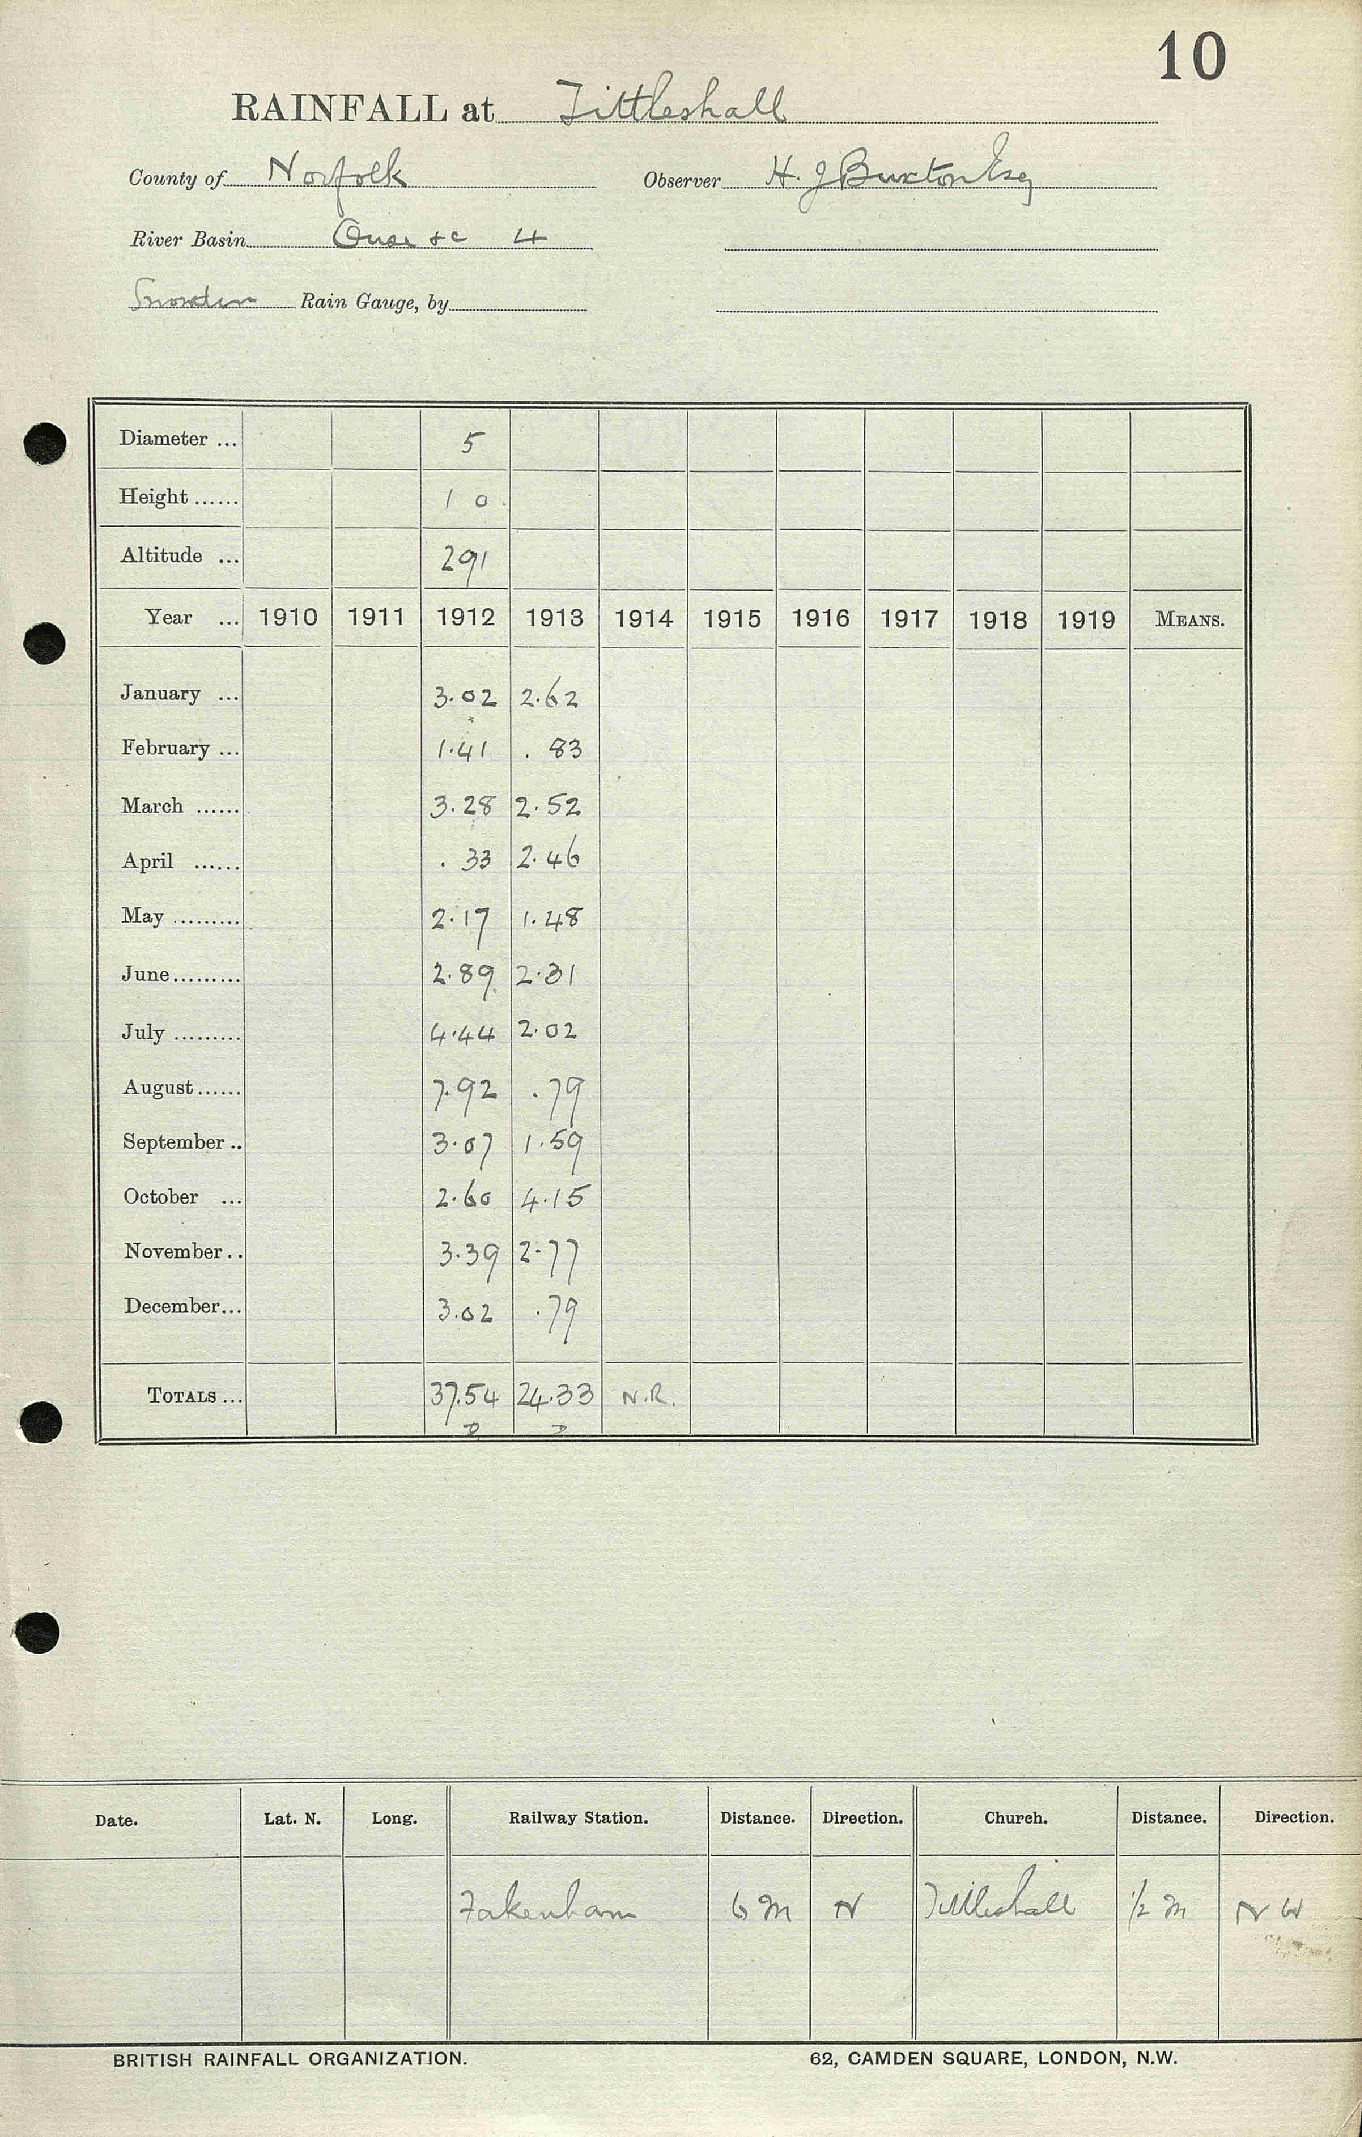 10
RAINFALL at Tittleshall
County of Norfolk Observer H. J Buxton Esq
River Basin Ouse &c 4
Snowdon Rain Gauge, by
Diameter ... 5
Height ...... 1 0
Altitude ... 291
Year ... 1910 1911 1912 1913 1914 1915 1916 1917 1918 1919 MEANS.
January ... 3.02 2.62
February ... 1.41 .83
March ...... 3.28 2.52
April ...... .33 2.46
May ......... 2.17 1.48
June ......... 2.89 2.31
July ......... 4.44 2.02
August ...... 7.92 .79
September .. 3.07 1.59
October ... 2.60 4.15
November .. 3.39 2.77
December... 3.02 .79
TOTALS ... 37.54 24.33 N.R.
Date. Lat. N. Long. Railway Station. Distance. Direction. Church. Distance. Direction.
Fakenham 6 m N Tittleshall 1/2 m N W
BRITISH RAINFALL ORGANIZATION. 62, CAMDEN SQUARE, LONDON, N.W.